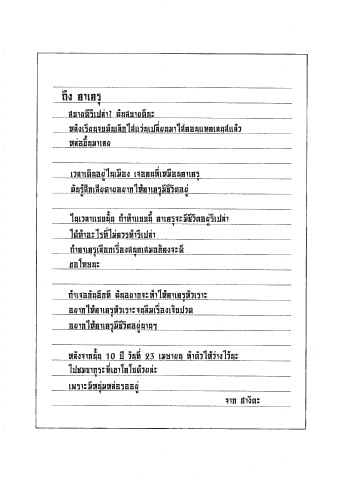 ถึง คาเครุ
สบายดีรึเปล่า? ฉันสบายดีนะ
หลังเรียนจบฉันเลิกใส่แว่นเปลี่ยนมาใส่คอนแทคเลนส์แล้ว
หล่อขึ้นมาเลย
เวลาเดินอยู่ในเมือง เจอคนที่เหมือนคาเครุ
ฉันรู้สึกเสียดายอยากให้คาเครุมีชีวิตอยู่
ในเวลาแบบนั้น ถ้าทำแบบนี้ คาเครุจะมีชีวิตอยู่รึเปล่า
ได้ทำอะไรที่ไม่ควรทำรึเปล่า
ถ้าคาเครุเลือกเรื่องสนุกเสมอก็คงจะดี
ขอโทษนะ
ถ้าเจอกันอีกที ฉันอยากจะทำให้คาเครุหัวเราะ
อยากให้คาเครุหัวเราะจนลืมเรื่องเจ็บปวด
อยากให้คาเครุมีชีวิตอยู่นานๆ
หลังจากนั้น 10 ปี วันที่ 23 เมษายน ทำตัวให้ว่างไว้นะ
ไปชมซากุระที่เขาโคโบด้วยล่ะ
เพราะมีหนุ่มหล่อรออยู่
จาก ฮางิตะ